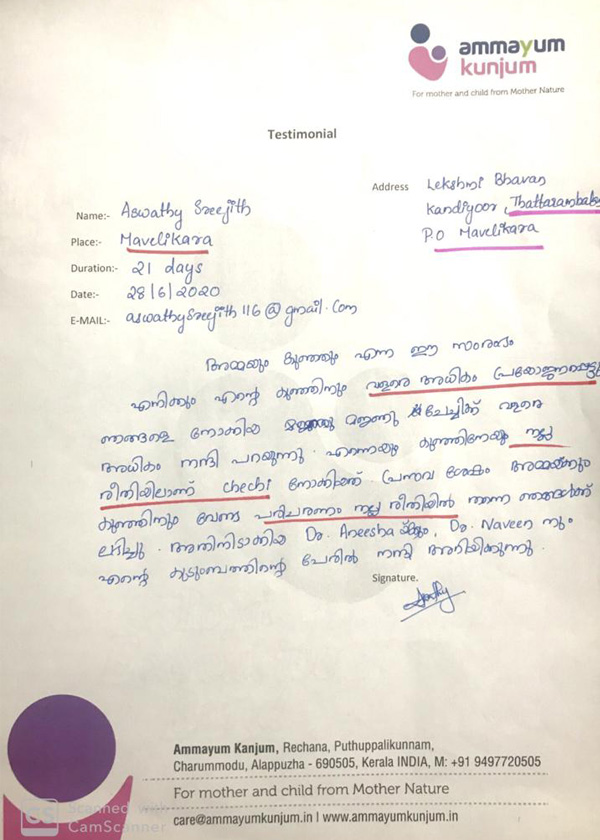 ammayum
kunjum
For mother and child from Mother Nature
Testimonial
Address Lekshmi Bhavan
Kandiyoor, Thattarambalam
P.O Mavelikara
Name:- Aswathy Sreejith
Place:- Mavelikara
Duration:- 21 days
Date:- 28/6/2020
E-MAIL:- aswathysreejith116@gmail.com
അമ്മയും കുഞ്ഞും എന്ന ഈ സംരംഭം
എനിക്കും എന്റെ കുഞ്ഞിനും വളരെ അധികം പ്രയോജനപ്പെട്ടു
ഞങ്ങളെ നോക്കിയ മഞ്ജു ചേച്ചിക്ക് വളരെ
അധികം നന്ദി പറയുന്നു. എന്നെയും കുഞ്ഞിനേയും നല്ല
രീതിയിലാണ് chechi നോക്കിയത്. പ്രസവ ശേഷം അമ്മയ്ക്കും
കുഞ്ഞിനും വേണ്ട പരിചരണം നല്ല രീതിയിൽ തന്നെ ഞങ്ങൾക്ക്
ലഭിച്ചു. അതിനിടാക്കിയ Dr. Aneesha യ്ക്കും, Dr. Naveen നും
എന്റെ കുടുംബത്തിന്റെ പേരിൽ നന്ദി അറിയിക്കുന്നു.
Signature.
Ammayum Kanjum, Rechana, Puthuppalikunnam,
Charummodu, Alappuzha - 690505, Kerala INDIA, M: +91 9497720505
For mother and child from Mother Nature
care@ammayumkunjum.in l www.ammayumkunjum.in
CS Scanned with
CamScanner